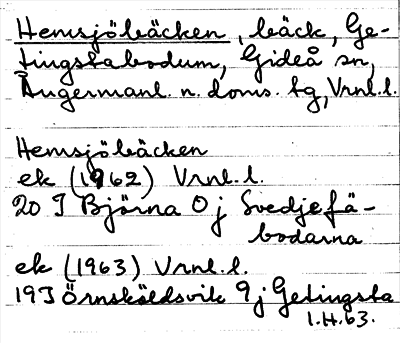 Hemsjöbäcken, bäck, Ge-
tingstabodum, Gideå sn,
Ångermanl. n. doms. tg, Vrnl. l.
Hemsjöbäcken
ek (1962) Vrnl. l.
20 I Björna 0 j Svedjefä-
bodarna
ek (1963) Vrnl. l.
19 I Örnsköldsvik 9 j Getingsta
I.H.63.